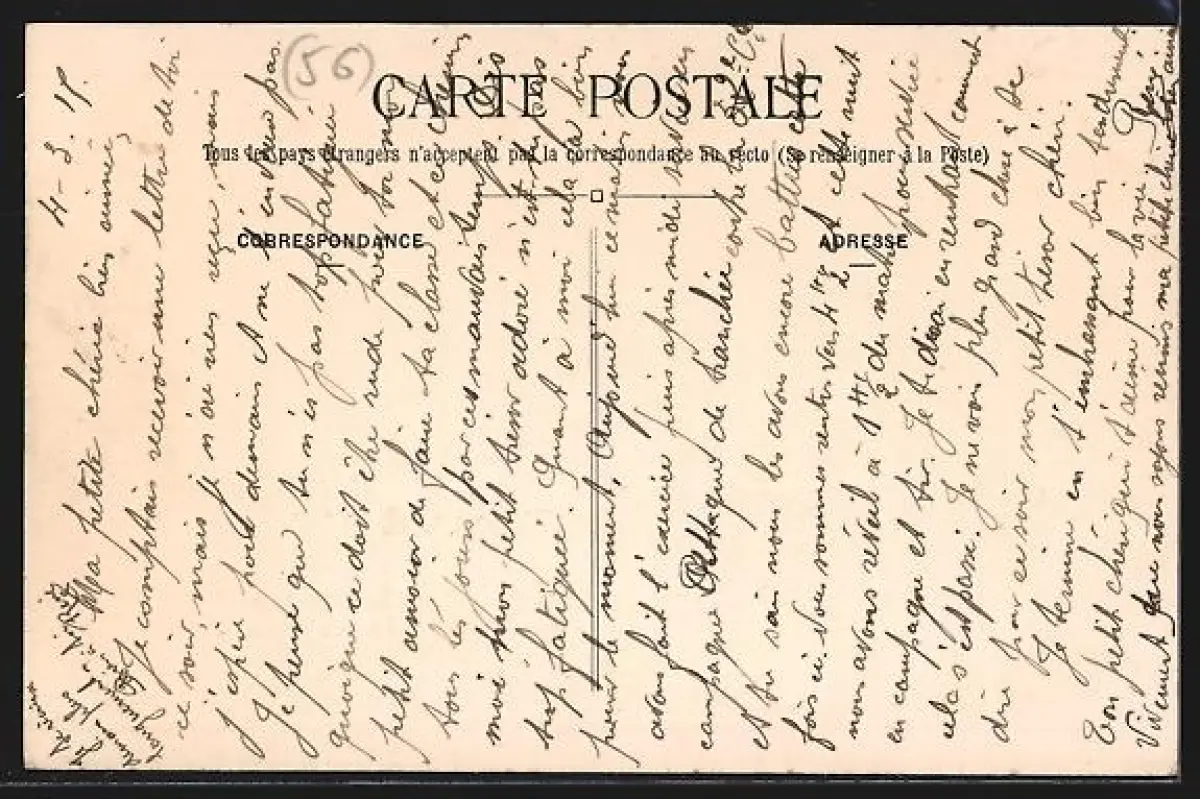 (56)
CARTE POSTALE
Tous les pays étrangers n'acceptent pas la correspondance au recto (Se renseigner à la Poste)
CORRESPONDANCE
ADRESSE
4-3-15.
Ma petite chérie bien aimée,
Je comptais recevoir une lettre de toi
ce soir, mais je n'ai rien reçu, mais
j'espère pour demain et ne t'en veux pas.
Je pense que tu n'es pas trop fatiguée
quoique ce doit être rude pour toi mon
petit amour de faire ta classe et ce chemin
tous les jours par ces mauvais temps. Dis
moi mon petit trésor adoré n'est-tu pas
trop fatiguée. Quant à moi cela va bien
pour le moment, Aujourd'hui ce matin nous
avons fait l'exercice puis après midi service en
campagne Attaque de tranchée contre la 2e Cie
et tu sais nous les avons encore battus cette
fois ci. Nous sommes rentrés vers 4h 1/2 et cette nuit
nous avons réveil à 1h 1/2 du matin pour
en campagne et tir. Je te dirai en rentrant comment
cela s'est passé. Je ne vois plus grand chose à te
dire pour ce soir mon petit trésor chéri.
Je termine en t'embrassant bien tendrement
Ton petit chéri qui t'aime pour la vie.
Vivement que nous soyons réunis ma petite chérie